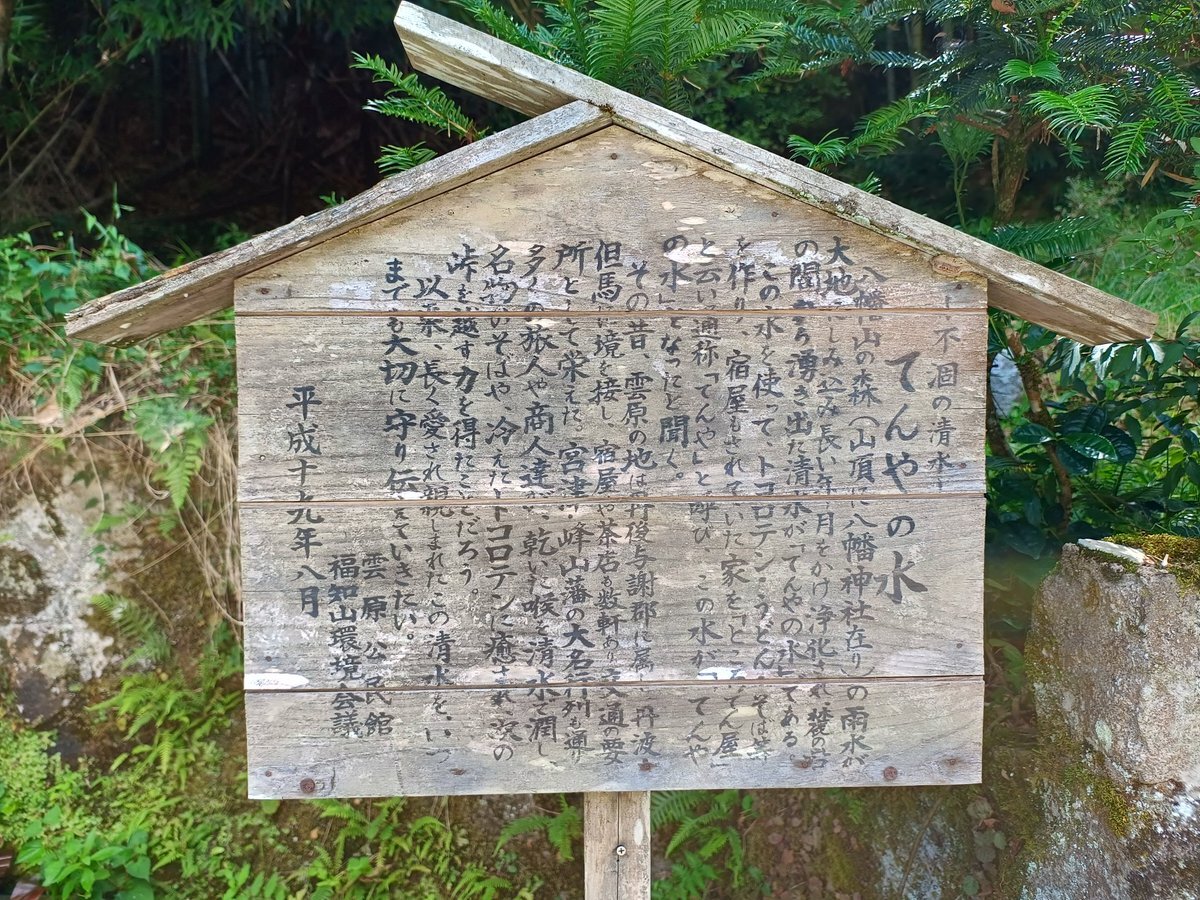 不涸の清水
てんやの水
八幡山の森(山頂に八幡神社在り)の雨水が
大地にしみ込み長い年月をかけ浄化され、麓の岩
の間から湧き出た清水が「てんやの水」である
この水を使って、トコロテン・うどん・そば等
を作り、宿屋もされていた家を「ところてん屋
と云い通称「てんや」と呼び、この水が「てんや
の水」となったと聞く。
その昔、雲原の地は丹後与謝郡に属し、丹波
但馬に境を接し、宿屋や茶店も数軒あり交通の要
所として栄えた。宮津・峰山藩の大名行列も通り
多くの旅人や商人達が、乾いた喉を清水で潤し
名物のそばや、冷えたトコロテンに癒され、次の
峠を越す力を得たことだろう。
以来、長く愛され親しまれたこの清水を、いつ
までも大切に守り伝えていきたい。
雲原公民館
福知山環境会議
平成十九年八月